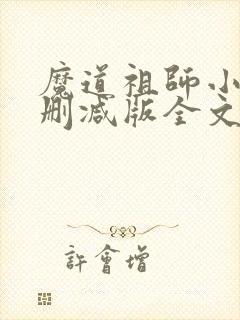 魔道祖師小
刪減版全文
許會增